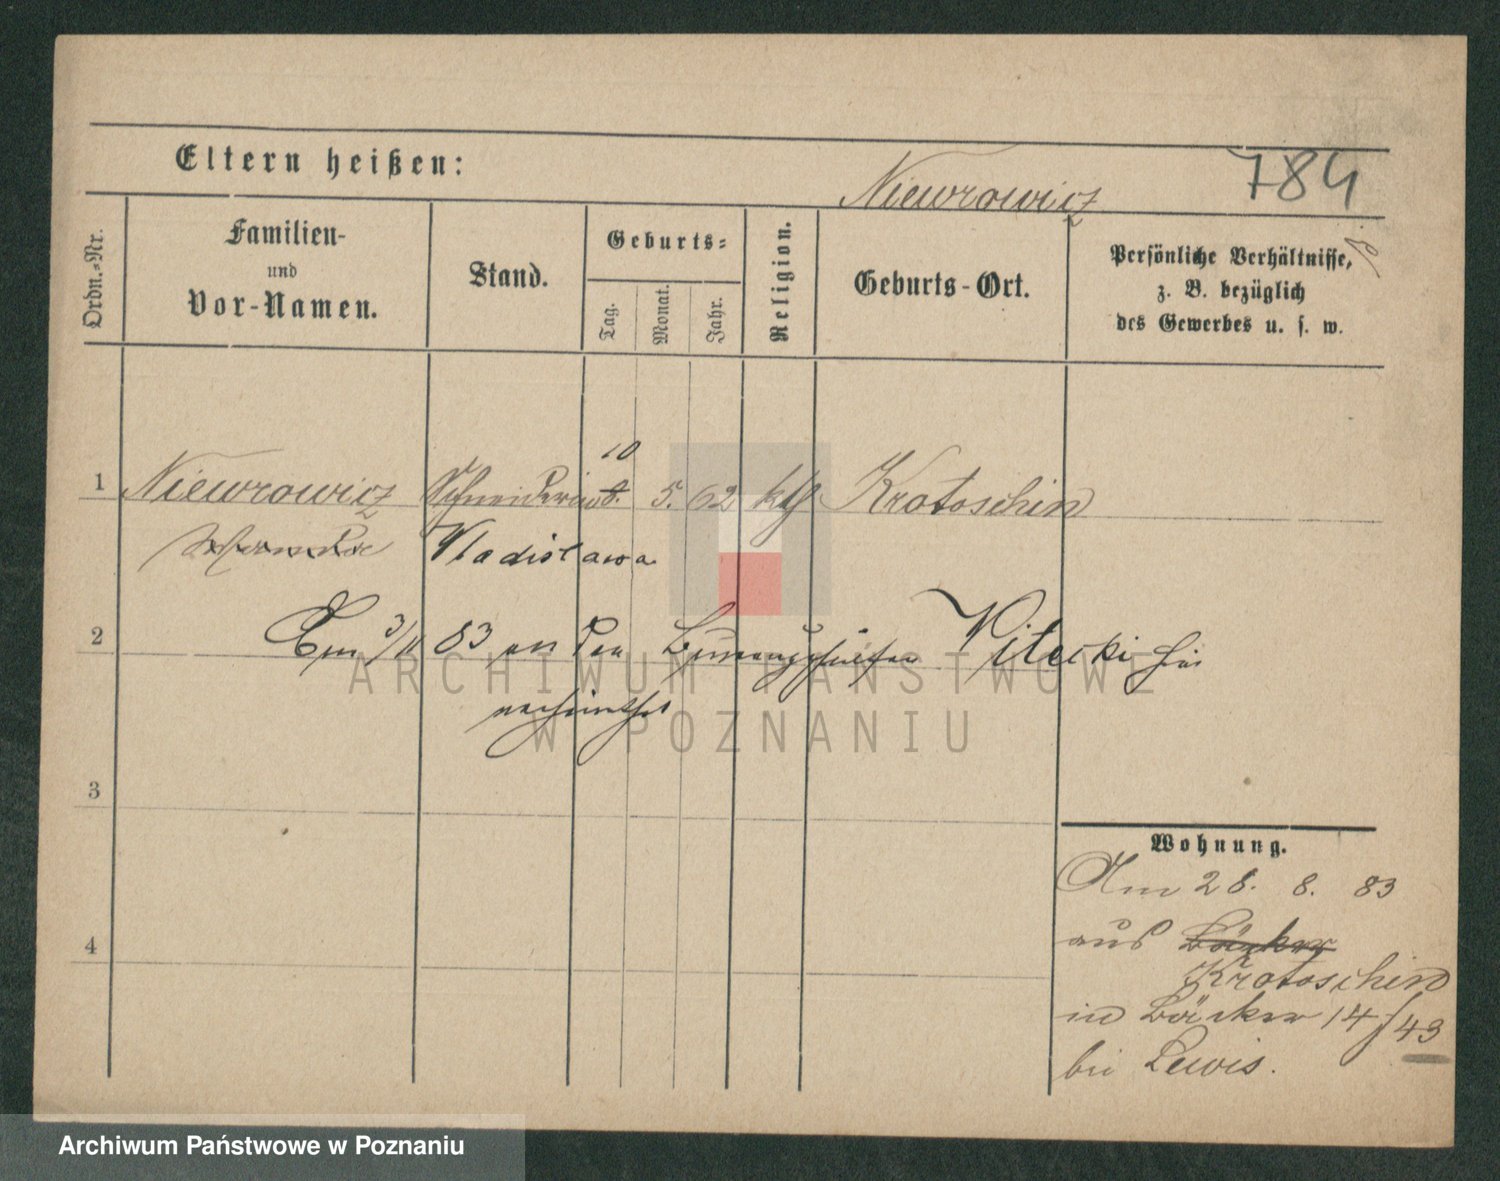 Eltern heißen:
Niewrowicz
784
Ordn.-Nr.
Familien-
und
Vor-Namen.
Stand.
Geburts-
Tag.
Monat.
Jahr.
Religion.
Geburts-Ort.
Persönliche Verhältnisse,
z. B. bezüglich
des Gewerbes u. s. w.
10
1 Niewrowicz Schneiderin 5. 62 kth Krotoschin
Vladislawa
2 83 an den Vitecki hier
3
Wohnung.
Am 28. 8. 83
aus Bäcker
4
Krotoschin
in Bäcker 14/43
bei Lewis.
ARCHIWUM PAŃSTWOWE
W POZNANIU
Archiwum Państwowe w Poznaniu